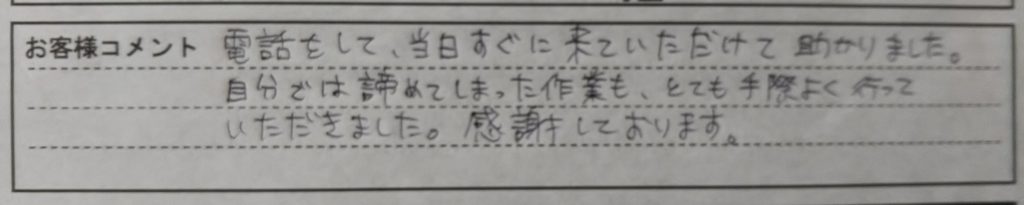 お客様コメント 電話をして、当日すぐに来ていただけて助かりました。
自分では諦めてしまった作業も、とても手際よく行って
いただきました。感謝しております。